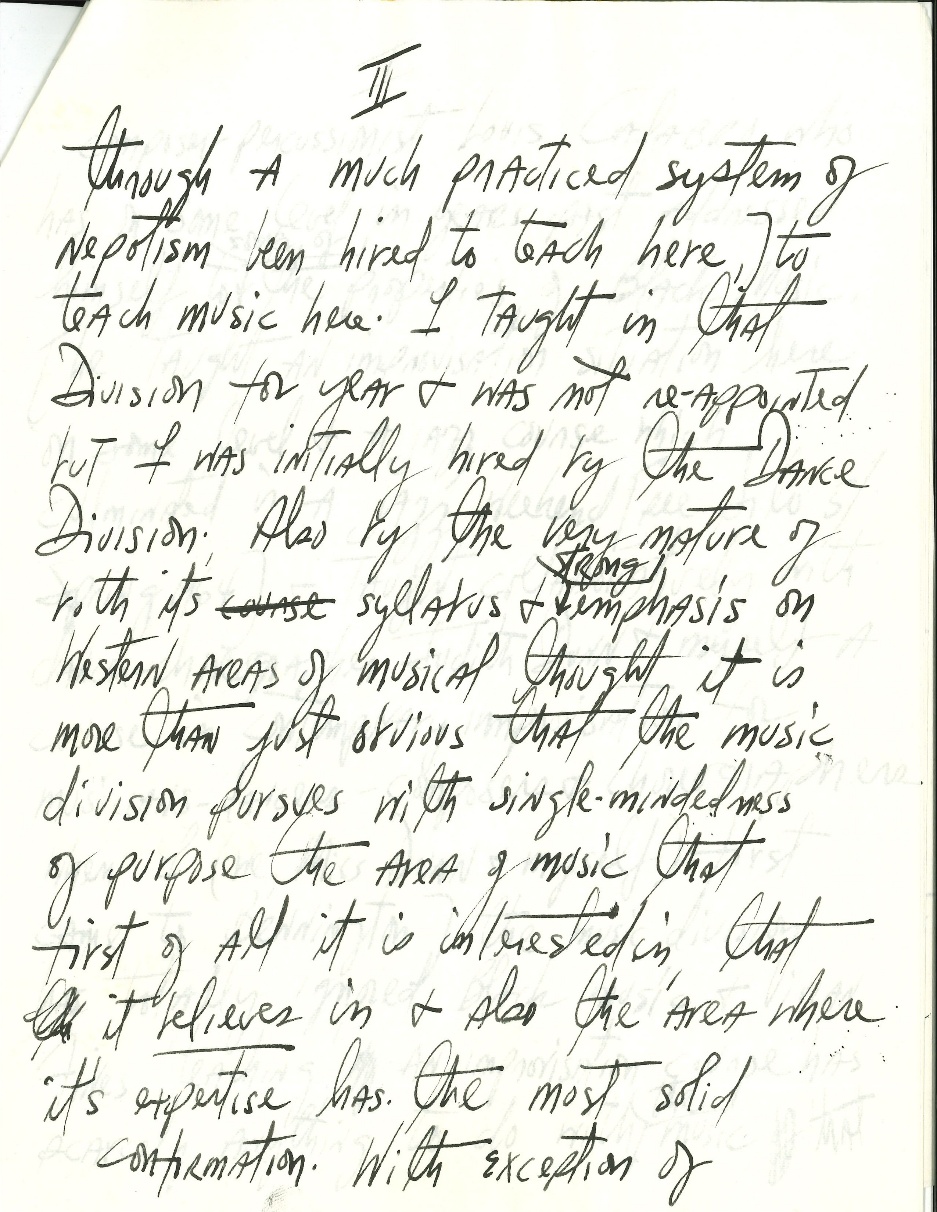 III
through A much practiced system of
Nepotism been hired to teach here,] to
teach music here. I taught in that
Division for year & was not re-appointed
but I was initially hired by the Dance
Division. Also by the very nature of
strong
both its course syllabus & emphasis on
Western areas of musical thought it is
more than just obvious that the music
division pursues with single-mindedness
of purpose the area of music that
first of all it is interested in that
it believes in & also the area where
it's expertise has the most solid
confirmation. With exception of